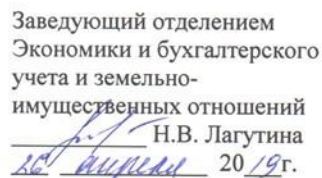 Заведующий отделением
Экономики и бухгалтерского
учета и земельно-
имущественных отношений
Н.В. Лагутина
26 апреля 2019г.